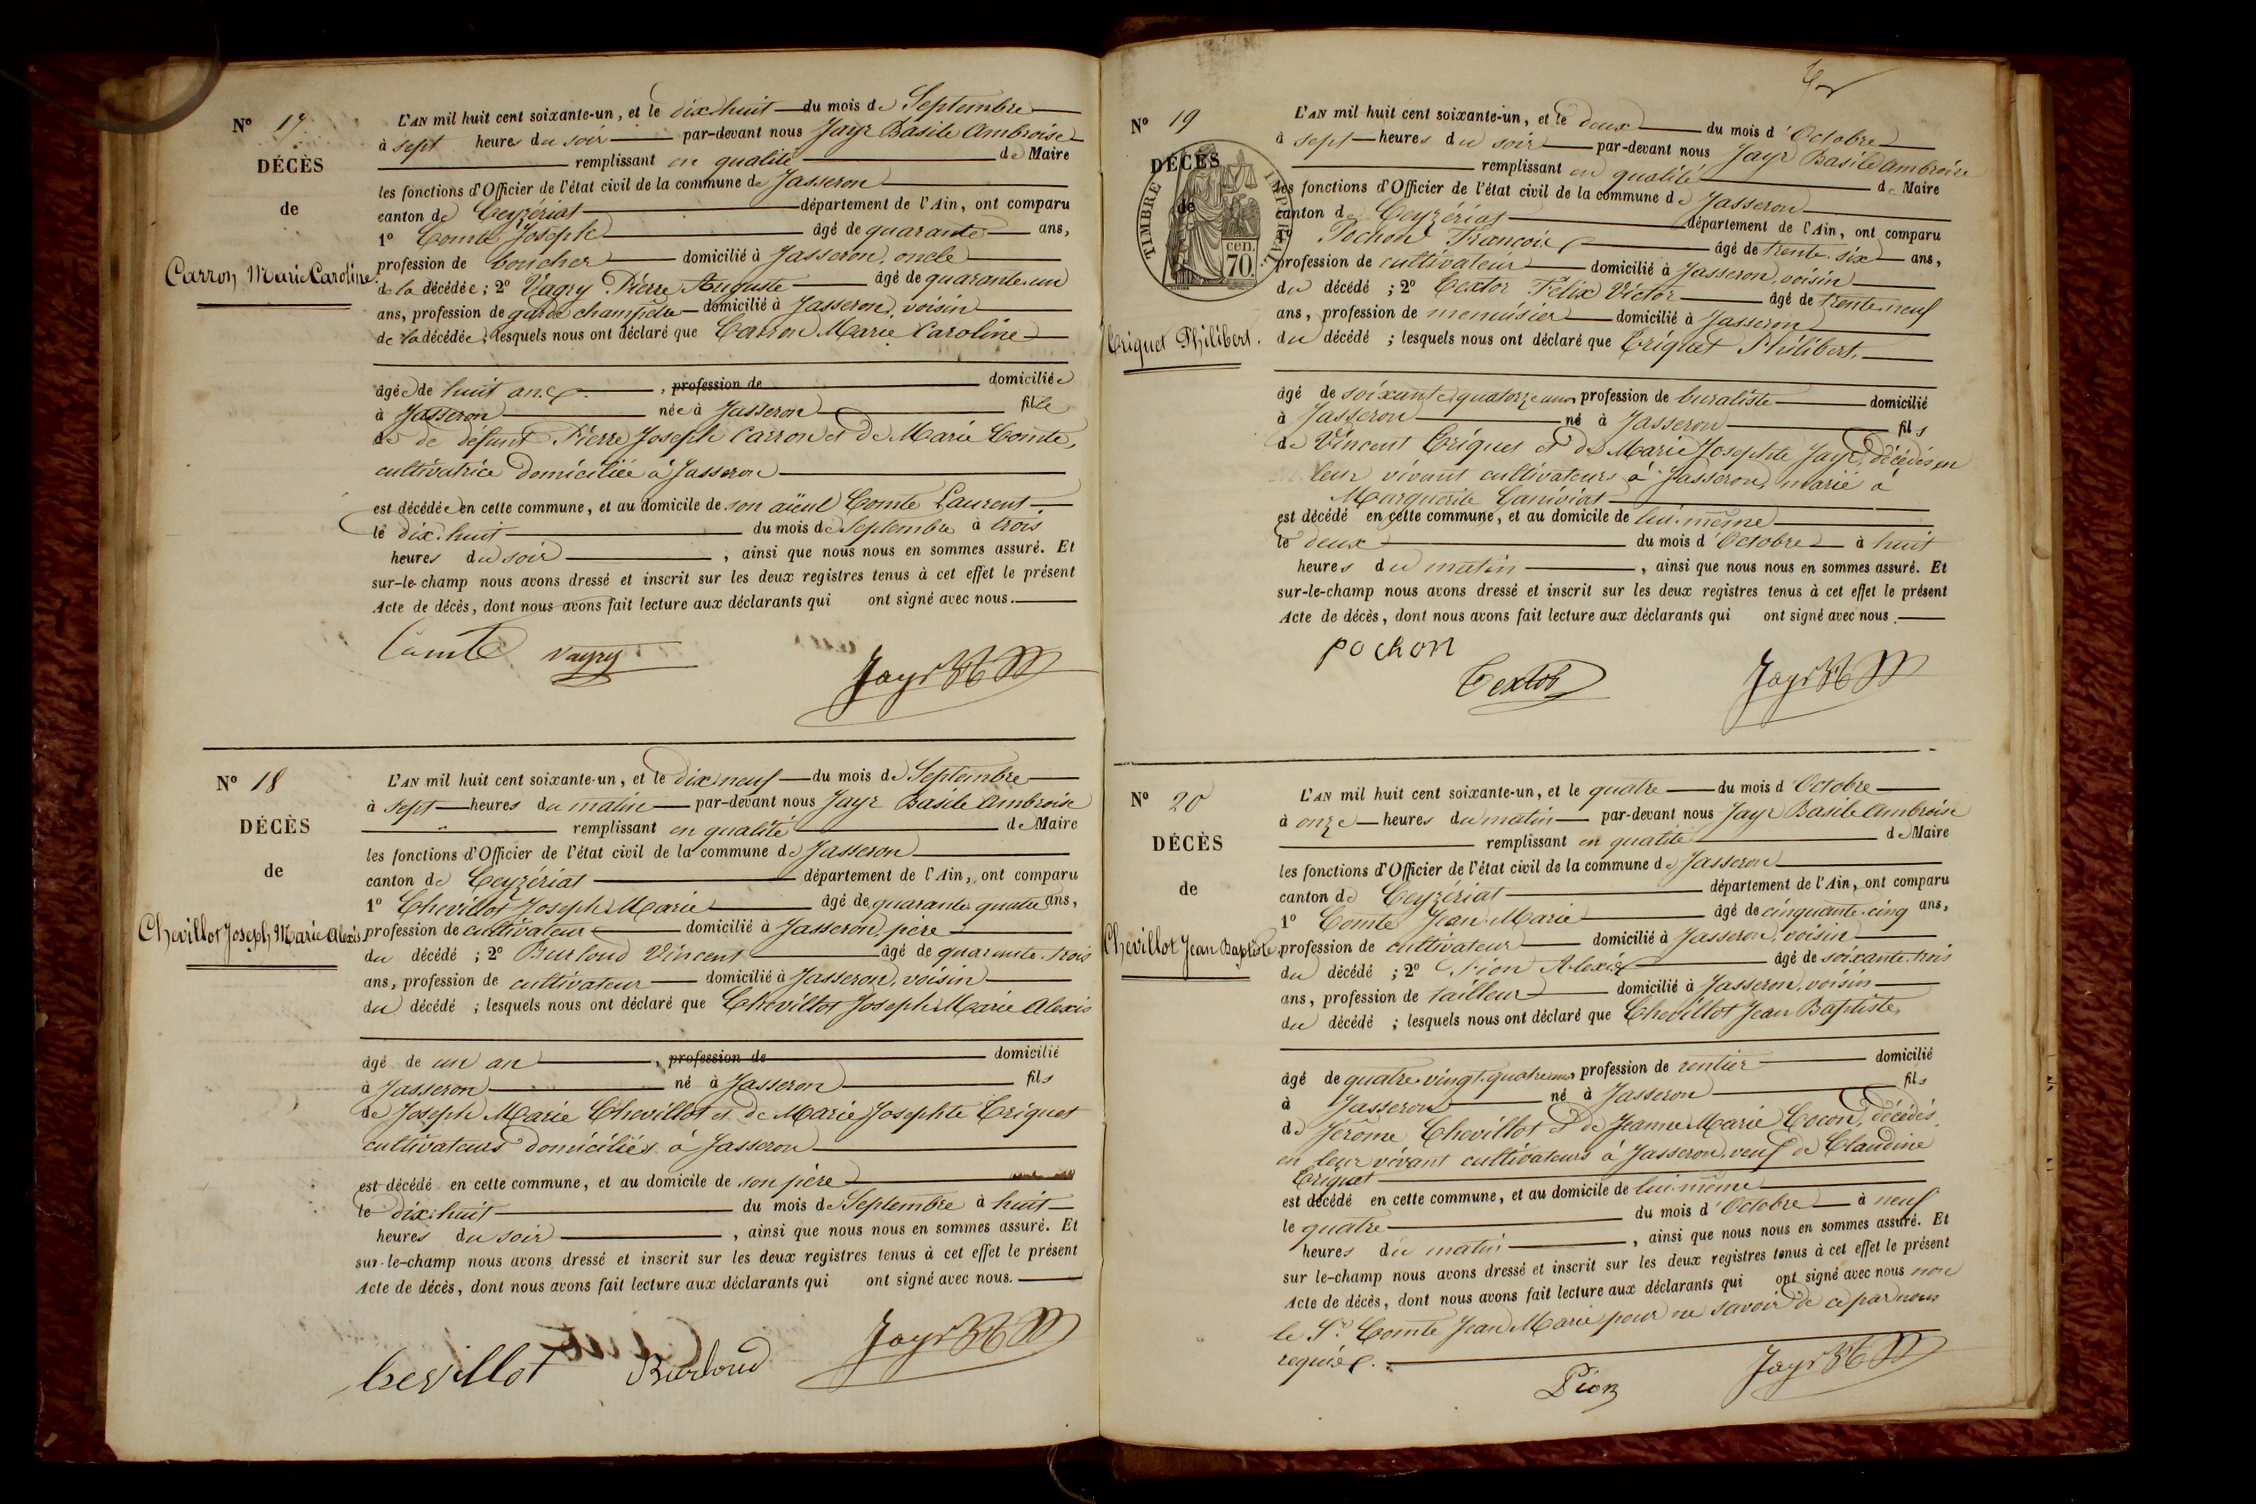 N° 17
DÉCÈS
de
Carron Marie Caroline
L'AN mil huit cent soixante-un, et le dix huit du mois de Septembre
à sept heures du soir par-devant nous Jayr Basile Ambroise
remplissant en qualité de Maire
les fonctions d'Officier de l'état civil de la commune de Jasseron
canton de Ceyzériat département de l'Ain, ont comparu
1° Comte Joseph âgé de quarante ans,
profession de boucher domicilié à Jasseron, oncle
de la décédée; 2° Vagry Pierre Auguste âgé de quarante un
ans, profession de garde champêtre domicilié à Jasseron, voisin
de la décédée; lesquels nous ont déclaré que Carron Marie Caroline
âgée de huit ans, profession de domiciliée
à Jasseron née à Jasseron fille
de de défunt Pierre Joseph Carron et de Marie Comte,
cultivatrice domiciliée à Jasseron
est décédée en cette commune, et au domicile de son aïeul Comte Laurent
le dix huit du mois de Septembre à trois
heures du soir, ainsi que nous nous en sommes assuré. Et
sur-le-champ nous avons dressé et inscrit sur les deux registres tenus à cet effet le présent
Acte de décès, dont nous avons fait lecture aux déclarants qui ont signé avec nous.
Comte Vagry Jayr
N° 18
DÉCÈS
de
Chevillot Joseph Marie Alexis
L'AN mil huit cent soixante-un, et le dix neuf du mois de Septembre
à sept heures du matin par-devant nous Jayr Basile Ambroise
remplissant en qualité de Maire
les fonctions d'Officier de l'état civil de la commune de Jasseron
canton de Ceyzériat département de l'Ain, ont comparu
1° Chevillot Joseph Marie âgé de quarante quatre ans,
profession de cultivateur domicilié à Jasseron, père
du décédé; 2° Burloud Vincent âgé de quarante-trois
ans, profession de cultivateur domicilié à Jasseron, voisin
du décédé; lesquels nous ont déclaré que Chevillot Joseph Marie Alexis
âgé de un an, profession de domicilié
à Jasseron né à Jasseron fils
de Joseph Marie Chevillot et de Marie Josephte Criquet
cultivateurs domiciliés à Jasseron
est décédé en cette commune, et au domicile de son père
le dix-huit du mois de Septembre à huit
heures du soir, ainsi que nous nous en sommes assuré. Et
sur-le-champ nous avons dressé et inscrit sur les deux registres tenus à cet effet le présent
Acte de décès, dont nous avons fait lecture aux déclarants qui ont signé avec nous.
Chevillot Burloud Jayr
N° 19
DÉCÈS
de
TIMBRE IMPERIAL
70 cen.
Criquet Philibert.
L'AN mil huit cent soixante-un, et le deux du mois d'Octobre
à sept heures du soir par-devant nous Jayr Basile Ambroise
remplissant en qualité de Maire
les fonctions d'Officier de l'état civil de la commune de Jasseron
canton de Ceyzériat département de l'Ain, ont comparu
1° Pochon François âgé de trente-six ans,
profession de cultivateur domicilié à Jasseron, voisin
du décédé; 2° Textor Félix Victor âgé de trente-neuf
ans, profession de menuisier domicilié à Jasseron
du décédé; lesquels nous ont déclaré que Criquet Philibert.
âgé de soixante-quatorze ans profession de buraliste domicilié
à Jasseron né à Jasseron fils
de Vincent Criquet et de Marie Josephte Jayr, décédés en
leur vivant cultivateurs à Jasseron, marié à
Marguerite Caniviat
est décédé en cette commune, et au domicile de lui-même
le deux du mois d'Octobre à huit
heures du matin, ainsi que nous nous en sommes assuré. Et
sur-le-champ nous avons dressé et inscrit sur les deux registres tenus à cet effet le présent
Acte de décès, dont nous avons fait lecture aux déclarants qui ont signé avec nous.
pochon
Textor Jayr
N° 20
DÉCÈS
de
Chevillot Jean Baptiste
L'AN mil huit cent soixante-un, et le quatre du mois d'Octobre
à onze heures du matin par-devant nous Jayr Basile Ambroise
remplissant en qualité de Maire
les fonctions d'Officier de l'état civil de la commune de Jasseron
canton de Ceyzériat département de l'Ain, ont comparu
1° Comte Jean Marie âgé de cinquante-cinq ans,
profession de cultivateur domicilié à Jasseron, voisin
du décédé; 2° Pion Alexis âgé de soixante-trois
ans, profession de tailleur domicilié à Jasseron, voisin
du décédé; lesquels nous ont déclaré que Chevillot Jean Baptiste,
âgé de quatre-vingt-quatre ans profession de rentier domicilié
à Jasseron né à Jasseron fils
de Jérôme Chevillot et de Jeanne Marie Cocon, décédés,
en leur vivant cultivateurs à Jasseron, veuf de Claudine
Criquet
est décédé en cette commune, et au domicile de lui-même
le quatre du mois d'Octobre à neuf
heures du matin, ainsi que nous nous en sommes assuré. Et
sur le-champ nous avons dressé et inscrit sur les deux registres tenus à cet effet le présent
Acte de décès, dont nous avons fait lecture aux déclarants qui ont signé avec nous non
le Sr. Comte Jean Marie pour ne savoir de ce par nous
requis.
Pion Jayr